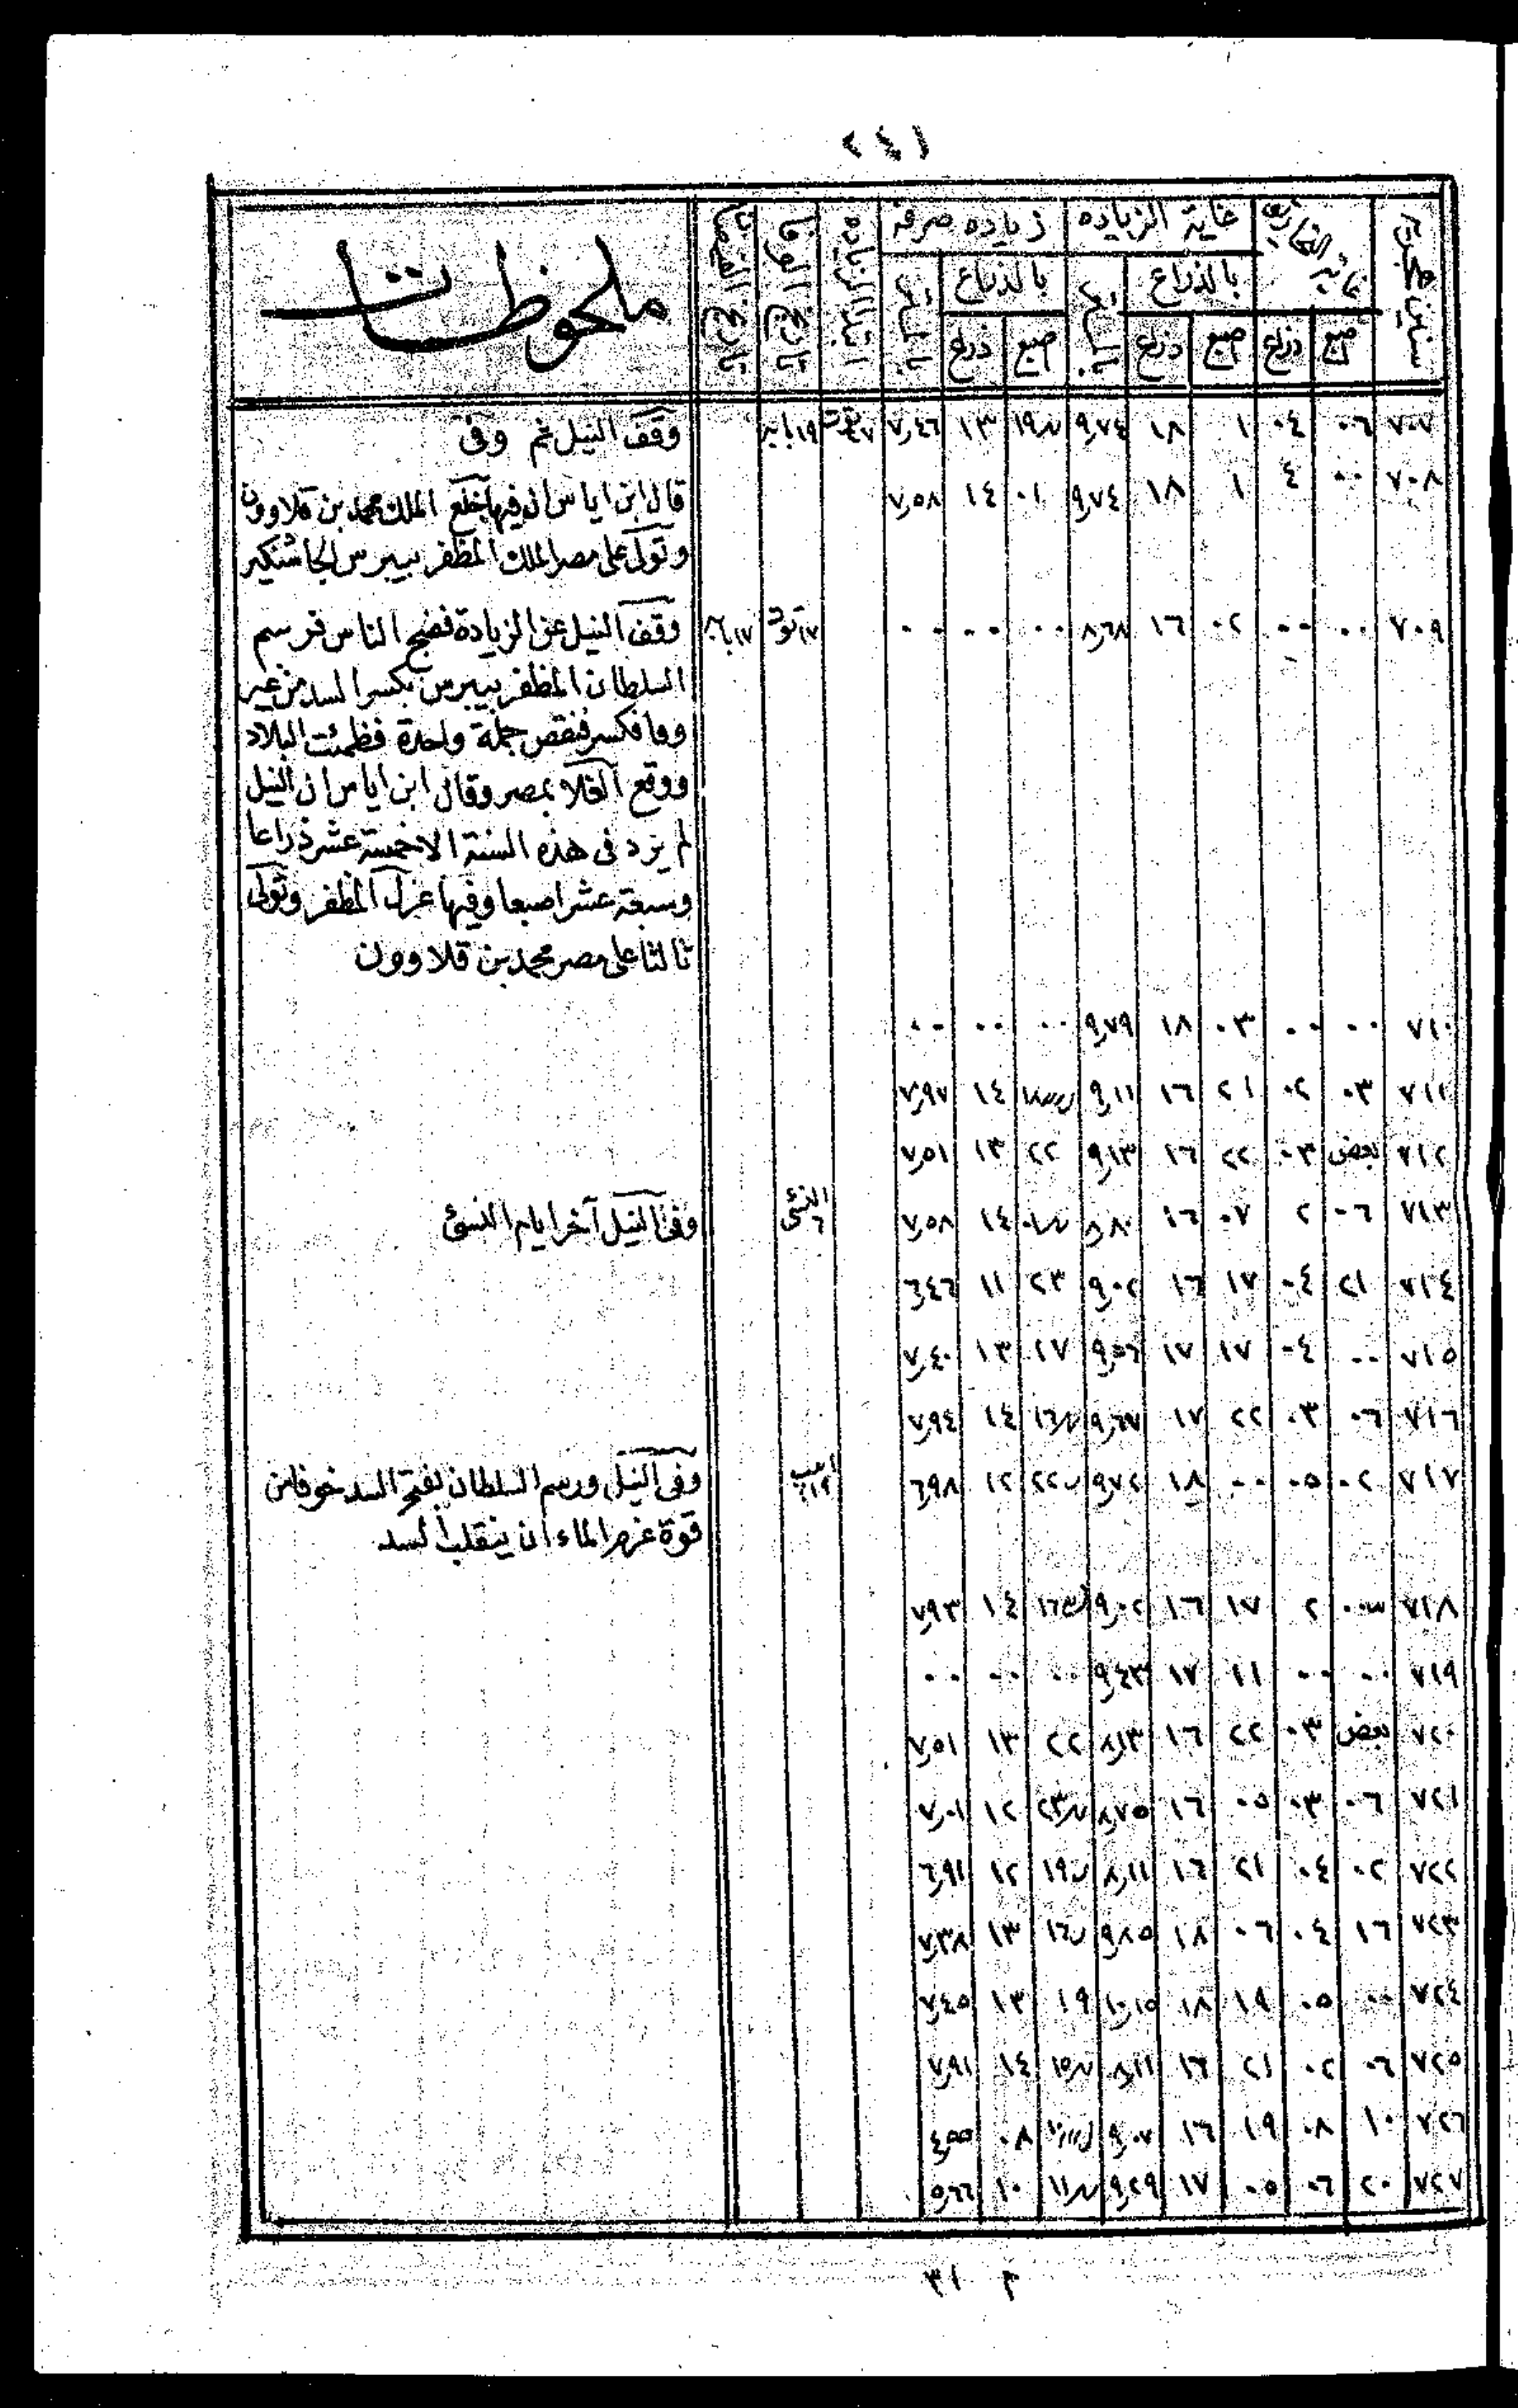 ٢٤١
سنين هجرية | غاية التحاريق | غاية الزيادة | زيادة صرفة | ابتدا الزيادة | تاريخ الوفا | ملحوظات
بالذراع | بالذراع
اصبع | ذراع | اصبع | ذراع | اصبع | ذراع
٧٠٧ | ٠٦ | ٠٤ | ١ | ١٨ | ٩,٧٤ | ١٩ | ١٣ | ٧,٤٦ | ١٩ بابه | وقف النيل ثم وفى
٧٠٨ | ٠٠ | ٤ | ١ | ١٨ | ٩,٧٤ | ٠١ | ١٤ | ٧,٥٨ | قال ابن اياس ان فيها خلع الملك محمد بن قلاوون
وتولى على مصر الملك المظفر بيبرس الجاشنكير
٧٠٩ | ٠٠ | ٠٠ | ٠٢ | ١٦ | ٨,٦٨ | ٠٠ | ٠٠ | ٠٠ | ١٧ توت | ١٧ بابه | وقف النيل عن الزيادة فضج الناس فرسم
السلطان المظفر بيبرس بكسر السد من غير
وفا فكسر فنقص جملة واحدة فظمئت البلاد
ووقع الغلا بمصر وقال ابن اياس ان النيل
لم يزد فى هذه السنة الا خمسة عشر ذراعا
وسبعة عشر اصبعا وفيها عزل المظفر وتولى
ثالثا على مصر محمد بن قلاوون
٧١٠ | ٠٠ | ٠٠ | ٠٣ | ١٨ | ٩,٧٩ | ٠٠ | ٠٠ | ٠٠
٧١١ | ٠٣ | ٠٢ | ٢١ | ١٦ | ٩,١١ | ١٤ | ٧,٩٧
٧١٢ | بعض | ٠٣ | ٢٢ | ١٦ | ٩,١٣ | ٢٢ | ١٣ | ٧,٥١
٧١٣ | ٠٦ | ٢ | ٠٧ | ١٦ | ٨,٨٠ | ٠١ | ١٤ | ٧,٥٨ | النسئ ٦ | وفى النيل آخر ايام النسئ
٧١٤ | ٢١ | ٠٤ | ١٧ | ١٦ | ٩,٠٢ | ٢٣ | ١١ | ٦,٤٦
٧١٥ | ٠٠ | ٠٤ | ١٧ | ١٧ | ٩,٥٦ | ١٧ | ١٣ | ٧,٤٠
٧١٦ | ٠٦ | ٠٣ | ٢٢ | ١٧ | ٩,٦٧ | ١٦ | ١٤ | ٧,٩٤
٧١٧ | ٠٢ | ٠٥ | ٠٠ | ١٨ | ٩,٧٢ | ٢٢ | ١٢ | ٦,٩٨ | وفى النيل ورسم السلطان بفتح السد خوفا من
قوة عزم الماء أن ينقلب السد
٧١٨ | ٢ | ١٧ | ١٦ | ٩,٠٢ | ١٦ | ١٤ | ٧,٩٣
٧١٩ | ٠٠ | ٠٠ | ١١ | ١٧ | ٩,٤٣ | ٠٠ | ٠٠ | ٠٠
٧٢٠ | بعض | ٠٣ | ٢٢ | ١٦ | ٨,١٣ | ٢٢ | ١٣ | ٧,٥١
٧٢١ | ٠٦ | ٠٣ | ٠٥ | ١٦ | ٨,٧٥ | ٢٣ | ١٢ | ٧,٠١
٧٢٢ | ٠٢ | ٠٤ | ٢١ | ١٦ | ٨,١١ | ١٩ | ١٢ | ٦,٩١
٧٢٣ | ١٦ | ٠٤ | ٠٦ | ١٨ | ٩,٨٥ | ١٦ | ١٣ | ٧,٣٨
٧٢٤ | ٠٠ | ٠٥ | ١٩ | ١٨ | ١٠,١٥ | ١٩ | ١٣ | ٧,٤٥
٧٢٥ | ٠٦ | ٠٢ | ٢١ | ١٦ | ٨,١١ | ١٥ | ١٤ | ٧,٩١
٧٢٦ | ١٠ | ٠٨ | ١٩ | ١٦ | ٩,٠٧ | ٠٨ | ٤,٥٥
٧٢٧ | ٢٠ | ٠٦ | ٠٥ | ١٧ | ٩,٢٩ | ١١ | ١٠ | ٥,٦٦
م ٣١